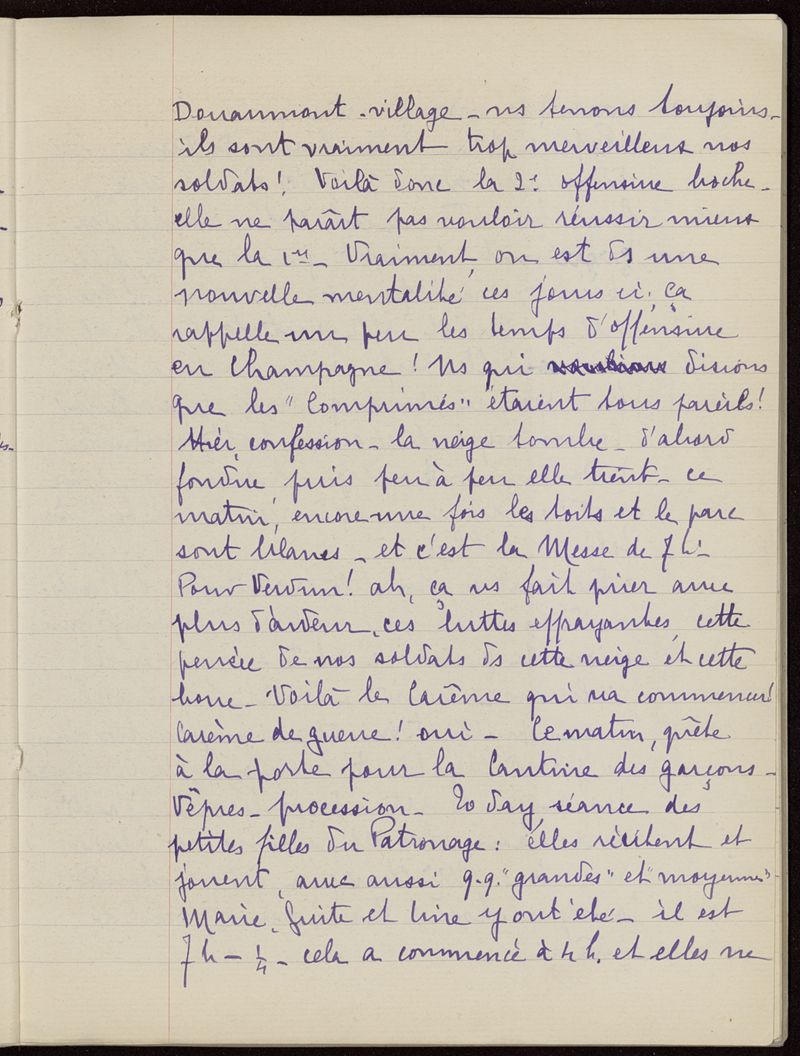 Douaumont-village - ns tenons toujours -
ils sont vraiment trop merveilleux nos
soldats! Voilà donc la 2e offensive boche -
elle ne paraît pas vouloir réussir mieux
que la 1ère - Vraiment, on est ds une
nouvelle mentalité ces jours ci; ça
rappelle un peu les temps d'offensive
en Champagne! Ns qui disions
que les "Comprimés" étaient tous pareils!
Hier, confession - la neige tombe - d'abord
fondue, puis peu à peu elle tient - ce
matin, encore une fois les toits et le parc
sont blancs - et c'est la Messe de 7h -
Pour Verdun! ah, ça ns fait prier avec
plus d'ardeur, ces luttes effrayantes, cette
pensée de nos soldats ds cette neige et cette
boue - Voilà le Carême qui va commencer!
Carême de guerre! oui - Ce matin, quête
à la porte pour la Cantine des garçons -
Vêpres - procession - To day, séance des
petites filles du Patronage: elles récitent et
jouent, avec aussi q.q. "grandes" et "moyennes"
Marie, Guite et Line y ont été - il est
7h - 1/4 - cela a commencé à 4h. et elles ne